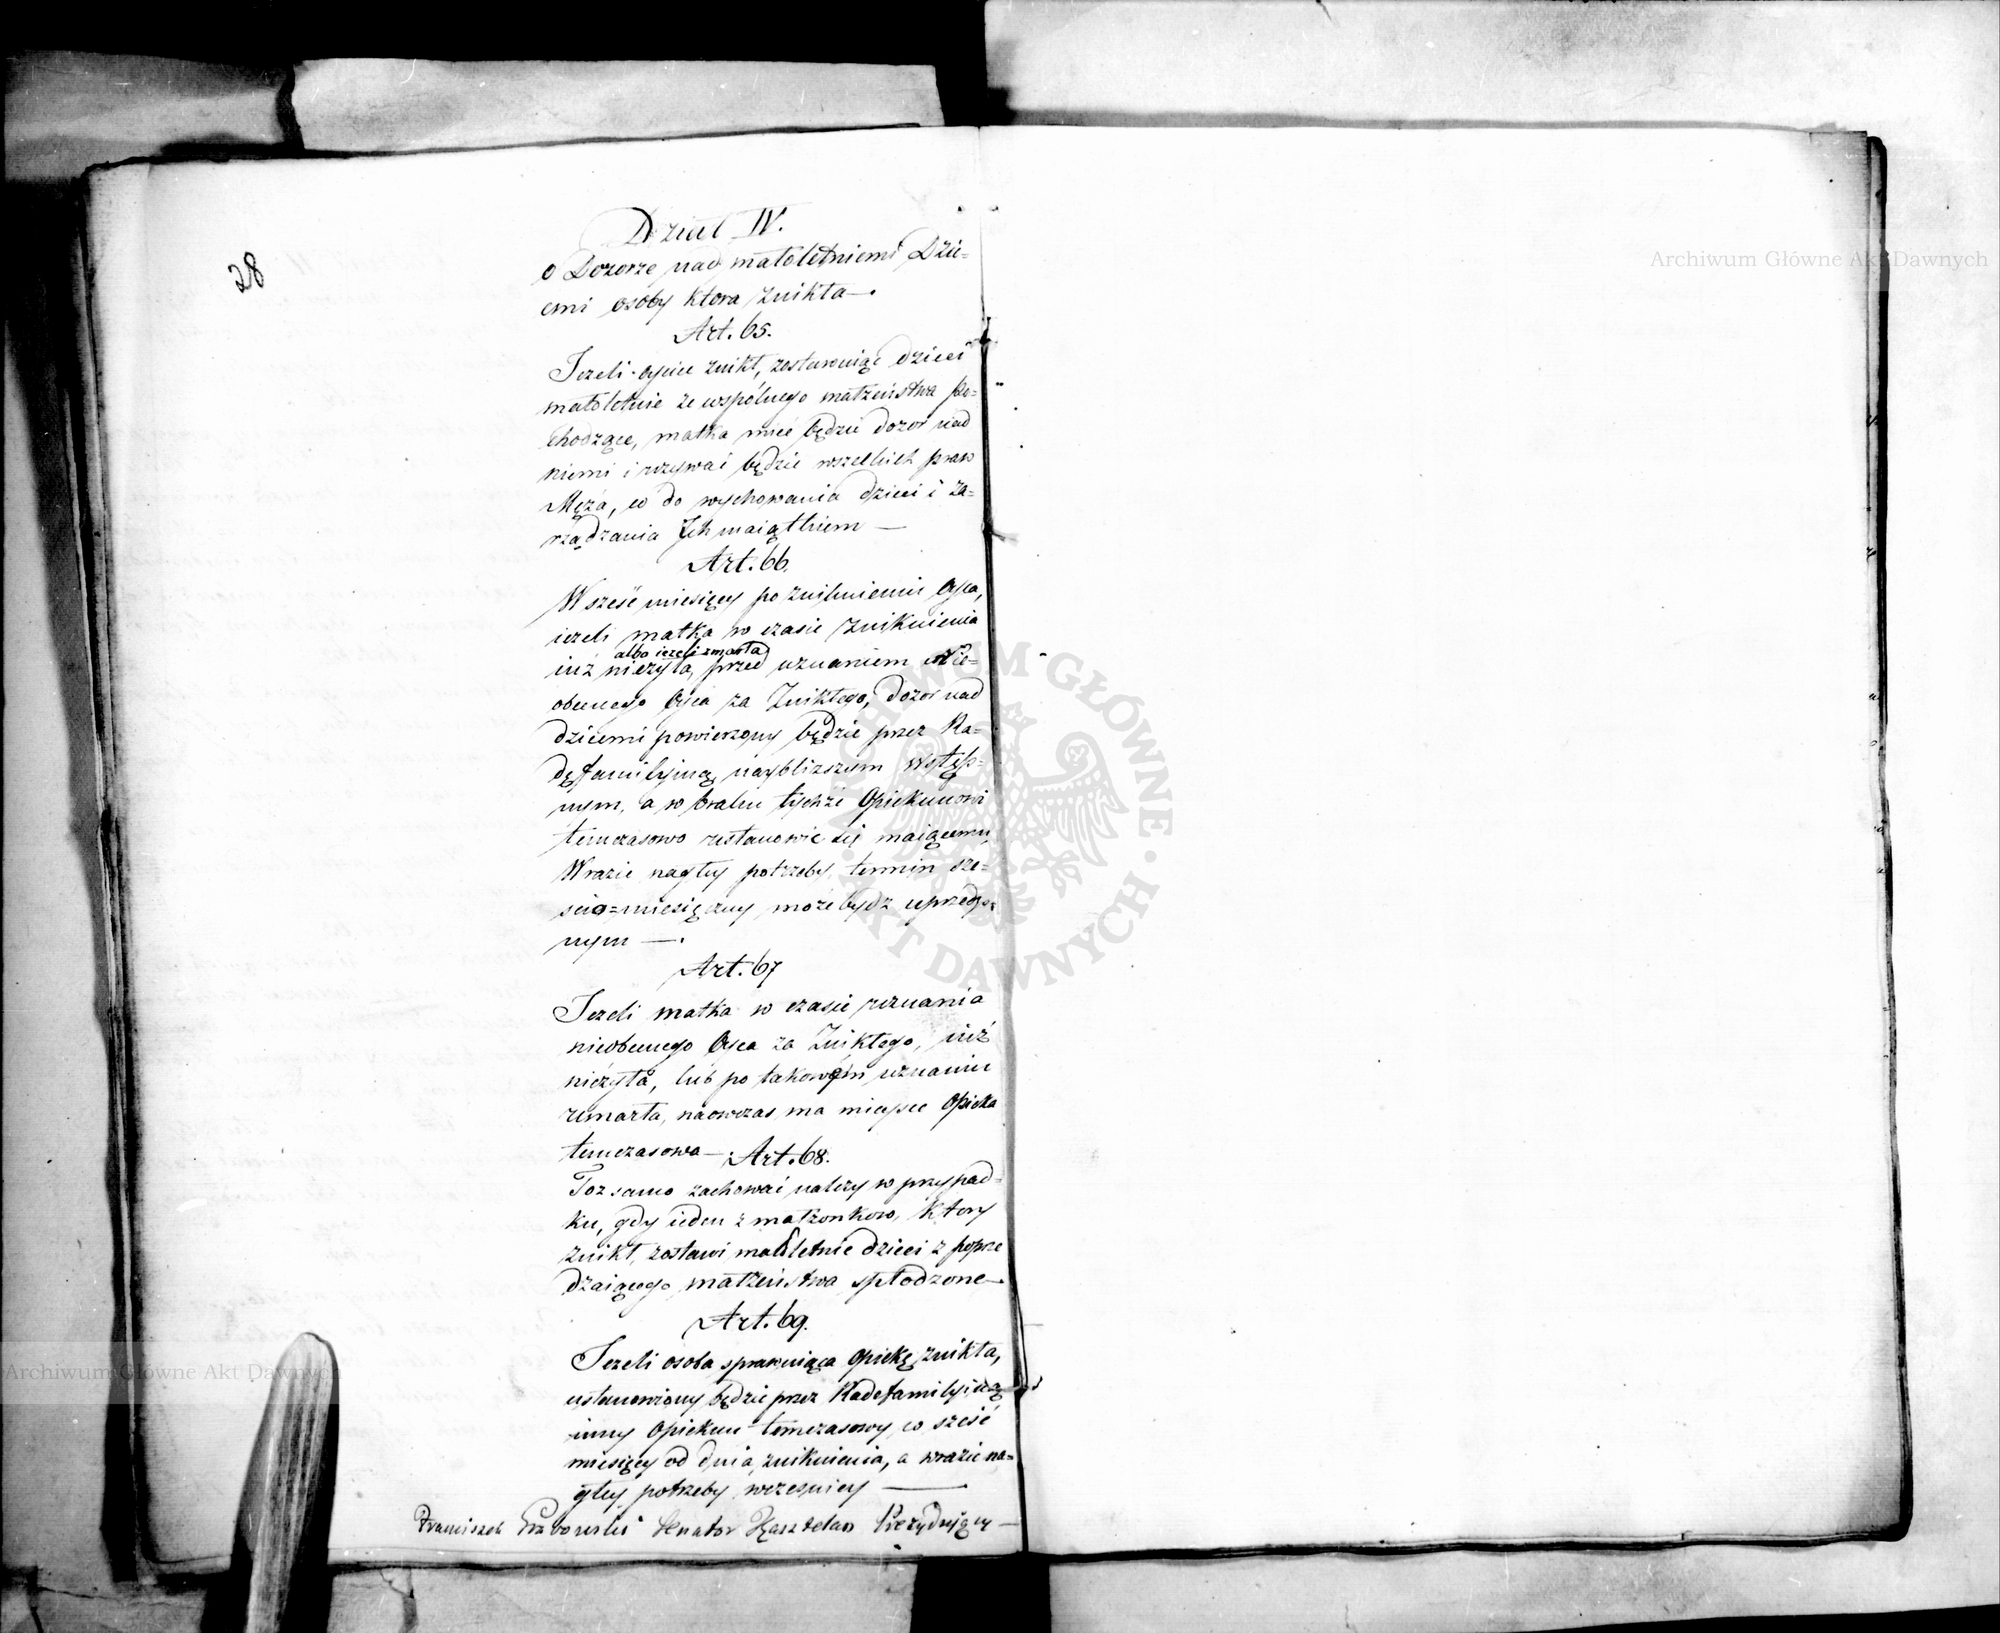 28
Dział IV.
o Dozorze nad małoletniemi Dzie=
cmi osoby ktora znikła —.
Art. 65.
Jezeli oyciec znikł, zostawuiąc dzieci
małoletnie ze wspólnego małżeństwa po=
chodzące, matka mieć będzie dozor nad
niemi i uzywać będzie wszelkich praw
Męża, co do wychowania dzieci i za=
rządzania Ich maiątkiem —
Art. 66.
W sześć miesięcy po zniknieniu Oyca,
ieżeli matka w czasie zniknienia
albo ieżeli zmarła
iuż nieżyła, przed uznaniem Nie=
obecnego Oyca za Znikłego, dozor nad
dziecmi powierzony będzie przez Ra=
dę familyiną naybliższym Wstęp=
nym, a w braku tychże Opiekunowi
temczasowo ustanowić się maiącemu,
W razie nagłey potrzeby, termin sze=
scio=miesięczny może bydz uprzedzo=
nym —.
Art. 67
Jezeli matka w czasie uznania
nieobecnego Oyca za Znikłego, iuż
nieżyła, lub po takowém uznaniu
umarła, naowczas ma mieysce Opieka
temczasowa — Art. 68.
Toż samo zachować nalezy w przypad=
ku, gdy ieden z małżonkow, ktory
znikł, zostawi małoletnie dzieci z poprze
dzaiącego małżeństwa spłodzone —
Art. 69.
Jezeli osoba sprawuiąca Opiekę znikła,
ustanowiony będzie przez Radę familyiną
inny Opiekun temczasowy, w sześć
miesięcy od dnia zniknienia, a w razie na=
głey potrzeby wcześniey —
Franciszek Grabowski Senator Kasztelan Prezyduiący —
Archiwum Główne Akt Dawnych
ARCHIWUM GŁÓWNE
AKT DAWNYCH
Archiwum Główne Akt Dawnych